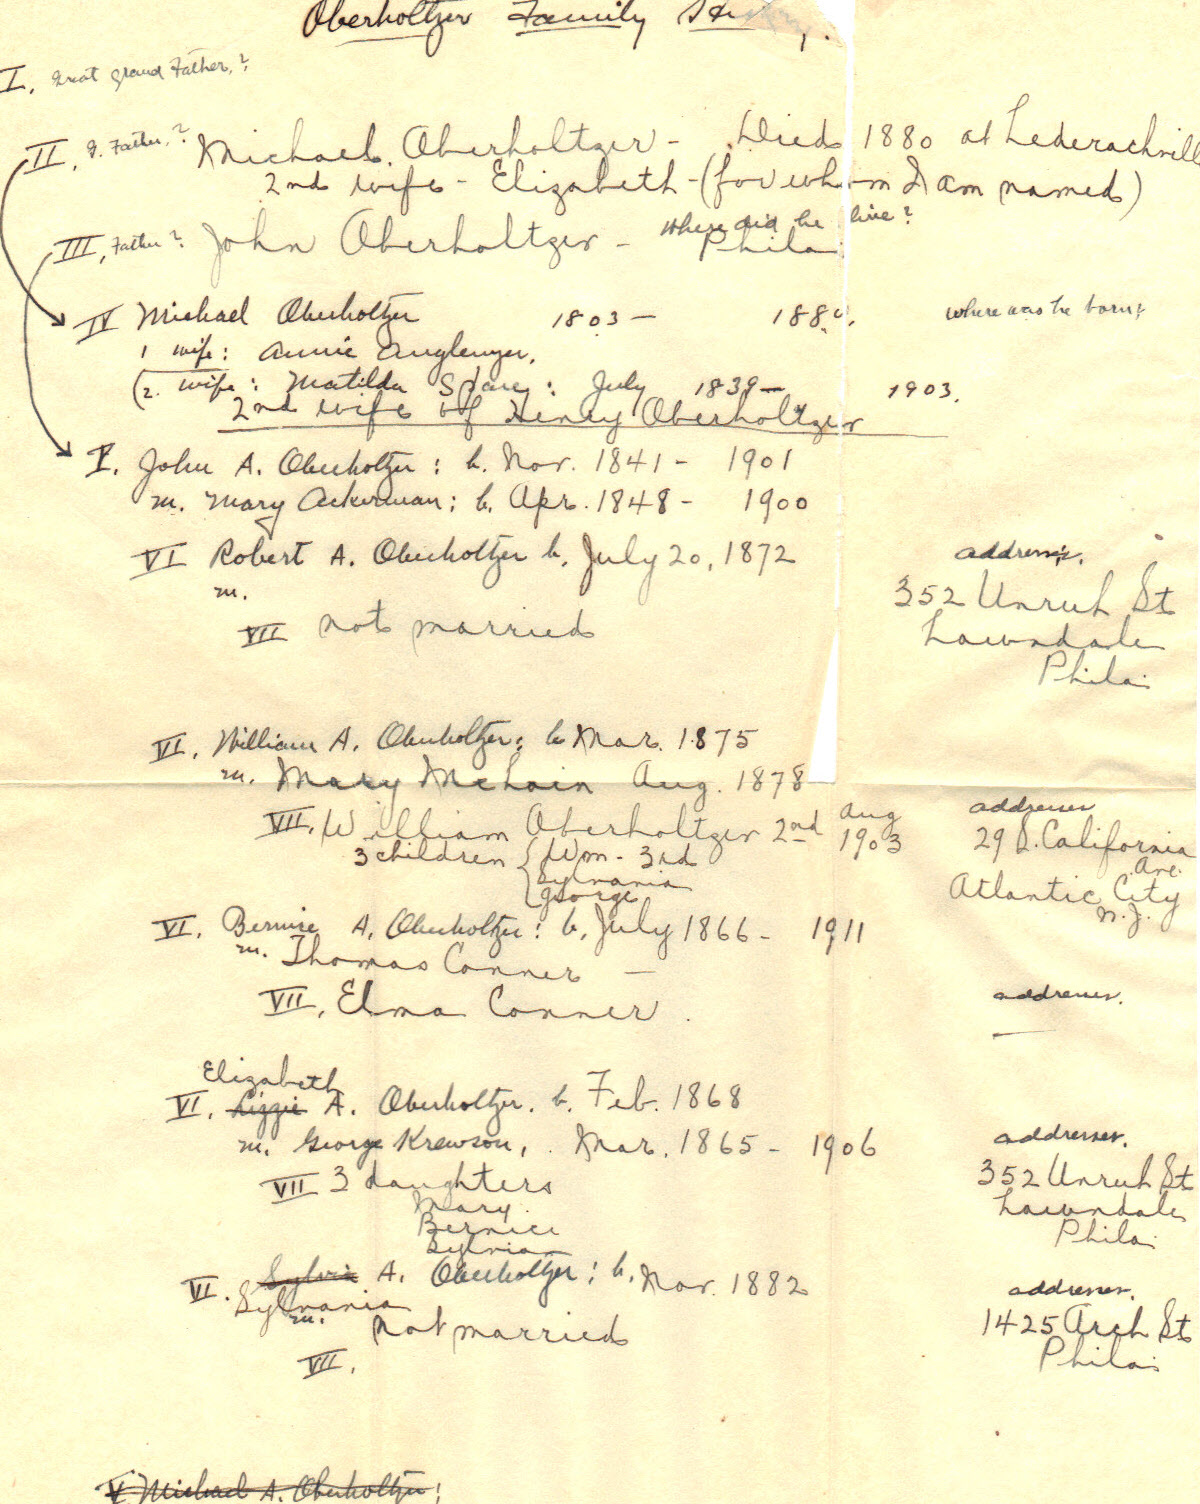 Oberholtzer Family
I. Great grand Father,?
II, G. Father,? Michael Oberholtzer - Died 1880 at Lederachvill
2nd wife - Elizabeth - (for whom I am named)
where did he live?
III, Father? John Oberholtzer - Phila
IV Michael Oberholtzer 1803 - 188 where was he born?
1 wife: Annie
(2. wife: Matilda : July 1839 - 1903.
2nd wife of Henry Oberholtzer
V. John A. Oberholtzer: b. Nov. 1841 - 1901
m. Mary Ackerman; b. Apr. 1848 - 1900
VI Robert A. Oberholtzer b. July 20, 1872 addresses.
m. 352 Unruh St
VII not married Lawndale
Phila.
VI. William A. Oberholtzer: b Mar. 1875
m. Mary McLain Aug. 1878
VII. William Oberholtzer 2nd Aug 1903 addresses
3 children { Wm - 3rd 29 S. California Ave.
Sylvania Atlantic City
George N. J.
VI. Bernice A. Oberholtzer: b. July 1866 - 1911
m. Thomas Conner -
VII. Elma Conner. addresses.
Elizabeth
VI. Lizzie A. Oberholtzer. b. Feb. 1868
m. George Krewson, Mar. 1865 - 1906 addresses.
VII 3 daughters 352 Unruh St
Mary Lawndale
Bernice Phila.
Sylvia
VI. Sylvia A. Oberholtzer: b. Nov. 1882 addresses.
Sylvania
m. not married 1425 Arch St
VII. Phila.
V. Michael A. Oberholtzer;